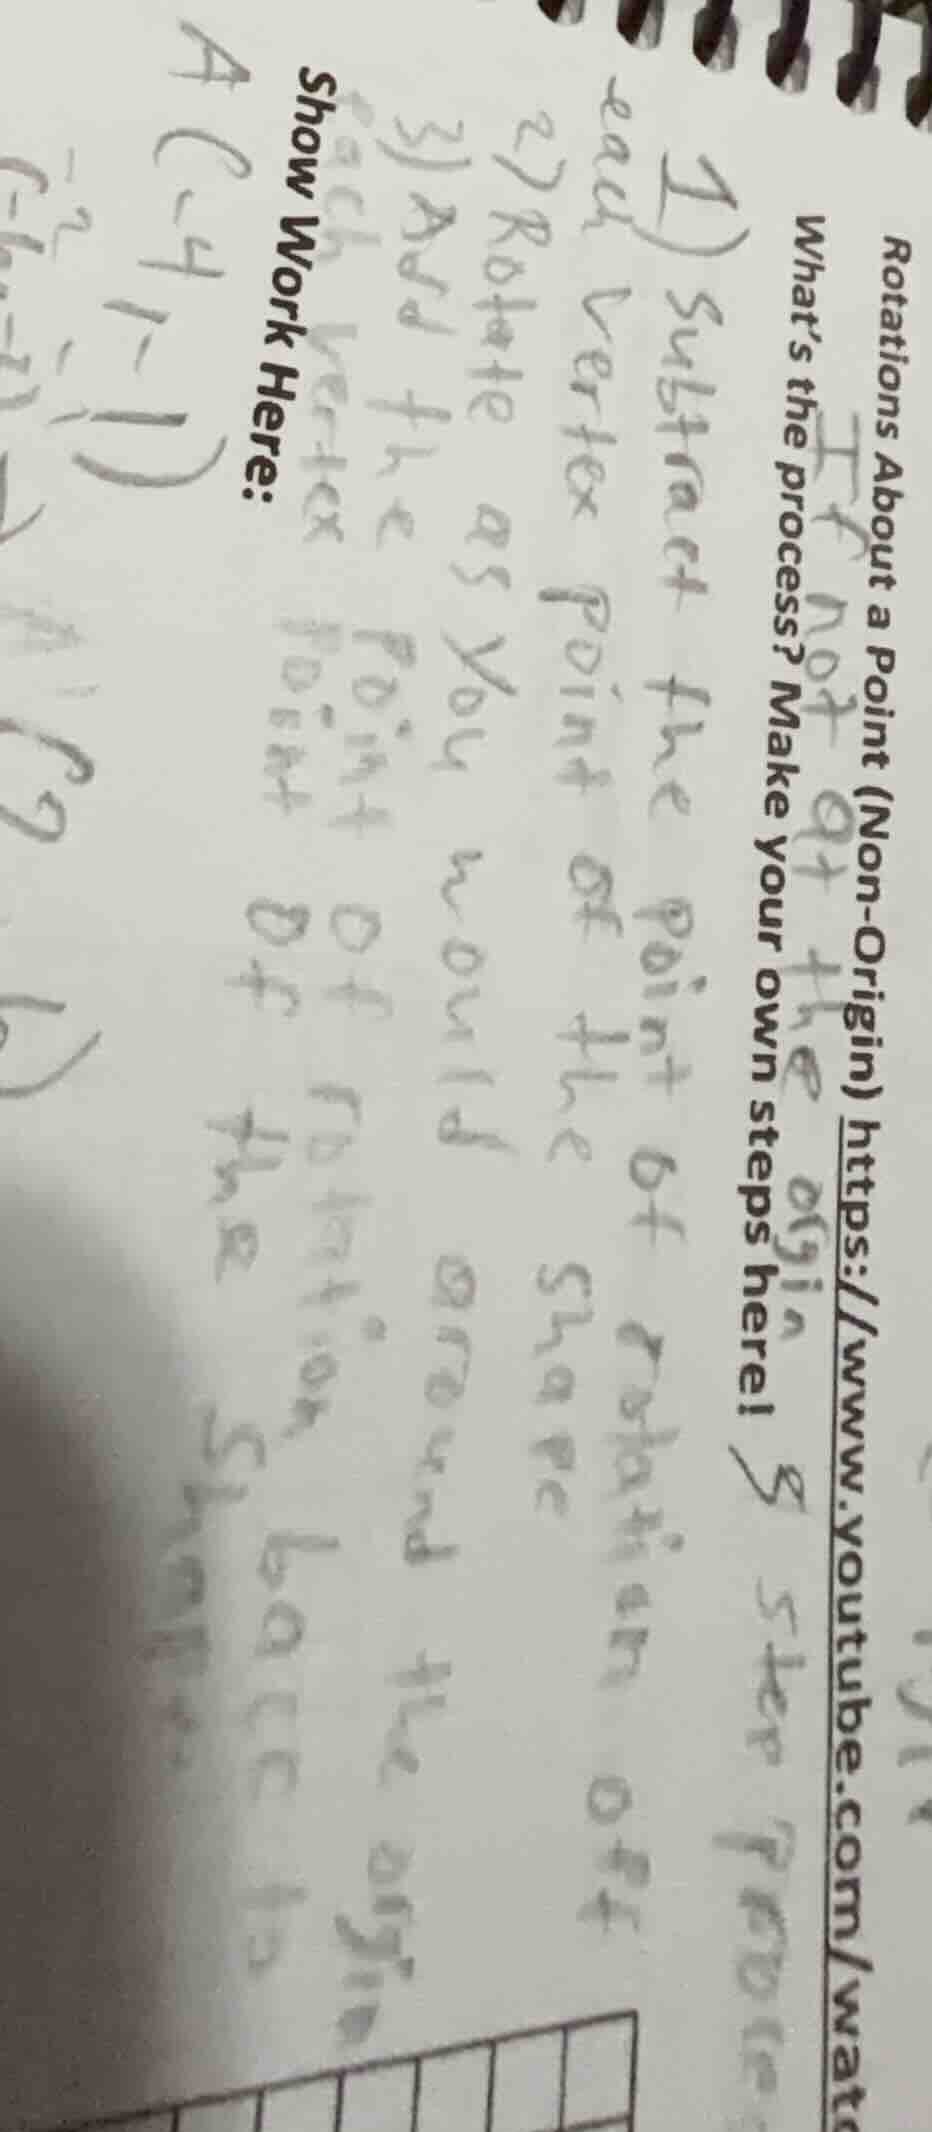 Rotations About a Point (Non-Origin) https://www.youtube.com/watc
If not at the orgin
What's the process? Make your own steps here! 3 step proce
1) Subtract the point of rotation off
each vertex point of the shape
2) Rotate as you would around the orgin
3) Add the point of rotation bacc to
each vertex point of the shape
Show Work Here:
A (-4, -1)
-2 -1